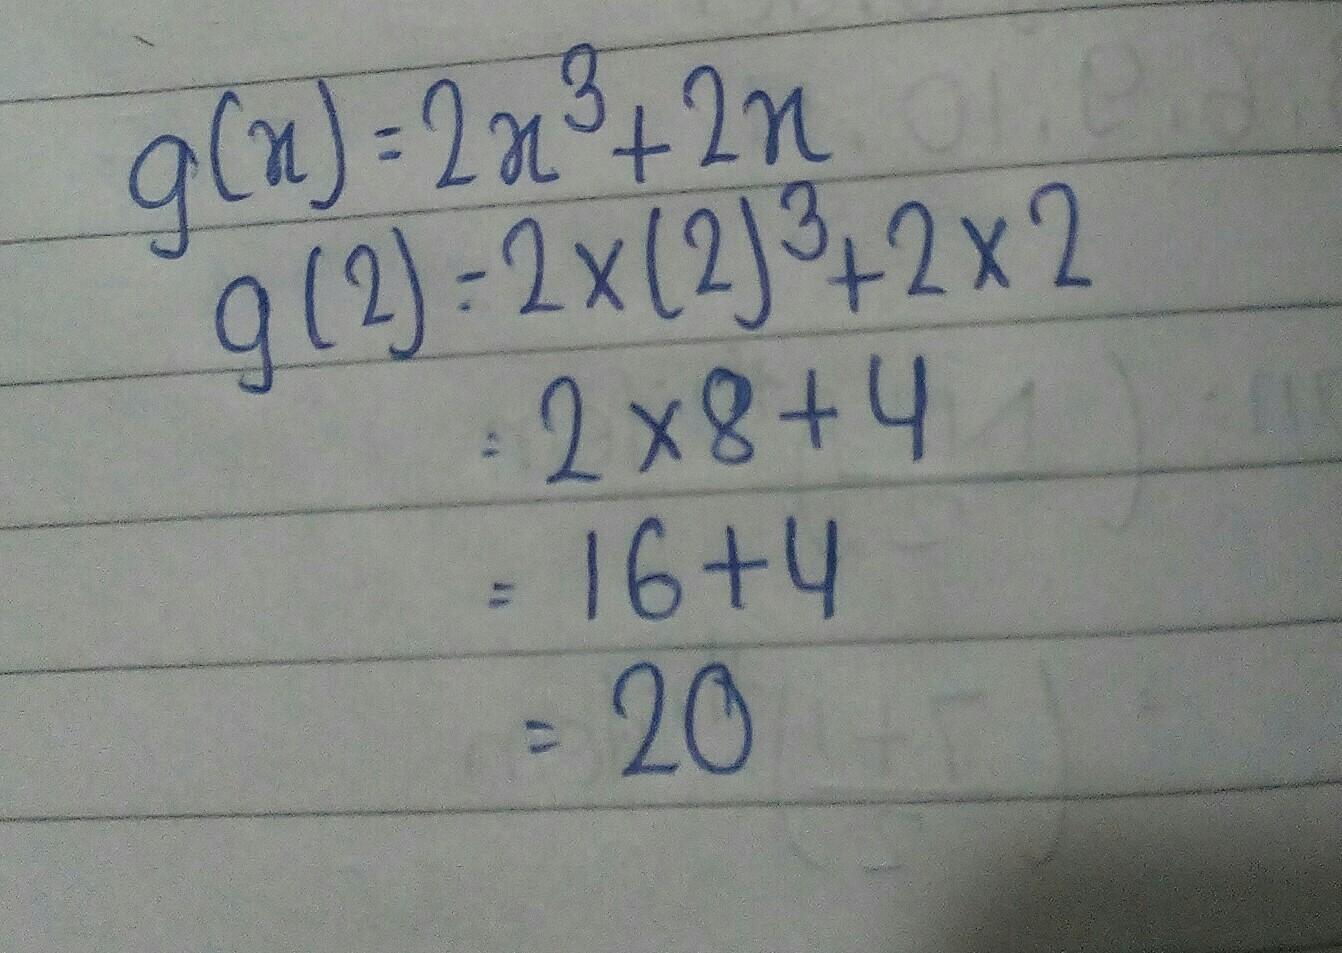 g(x) = 2x³ + 2x
g(2) = 2 × (2)³ + 2 × 2
= 2 × 8 + 4
= 16 + 4
= 20